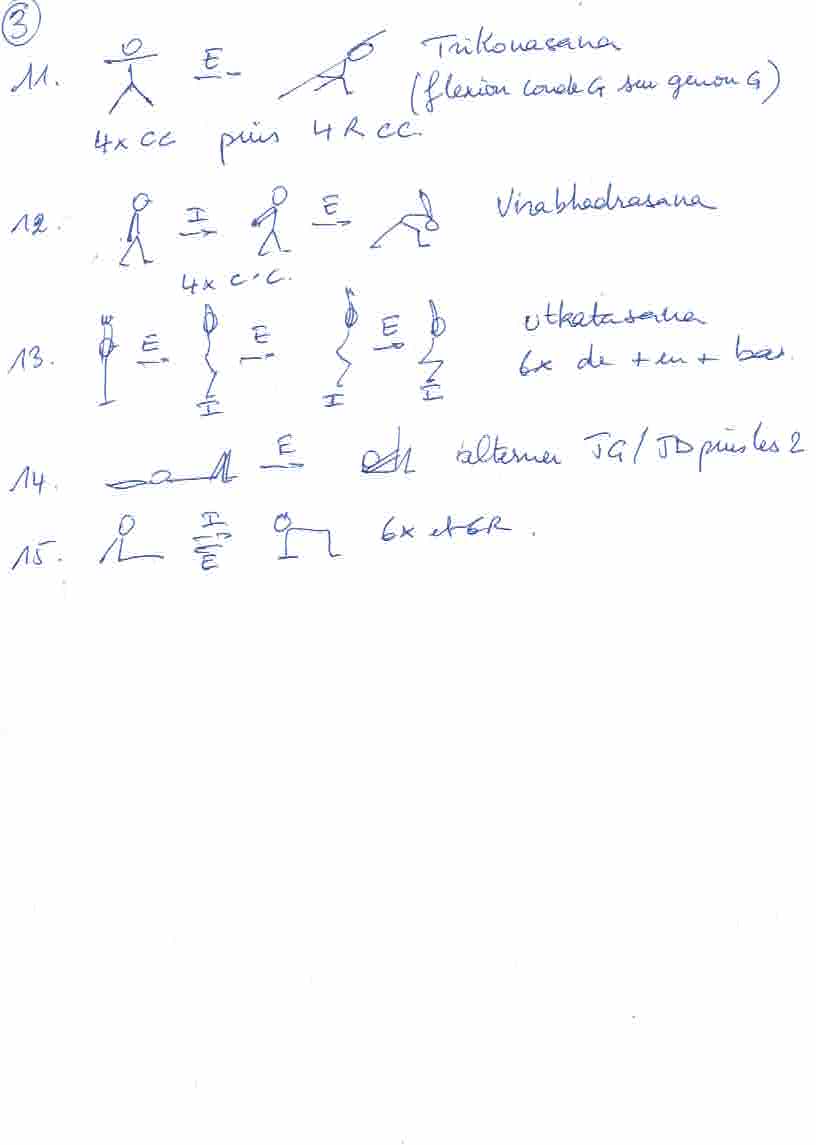 3
11. E Trikonasana
(flexion coude G sur genou G)
4x CC puis 4 R CC.
12. I E Virabhadrasana
4x C.C.
13. E E E utkatasana
I I I 6x de + en + bas.
14. E alterner JG/JD puis les 2
15. I E 6x et 6R.